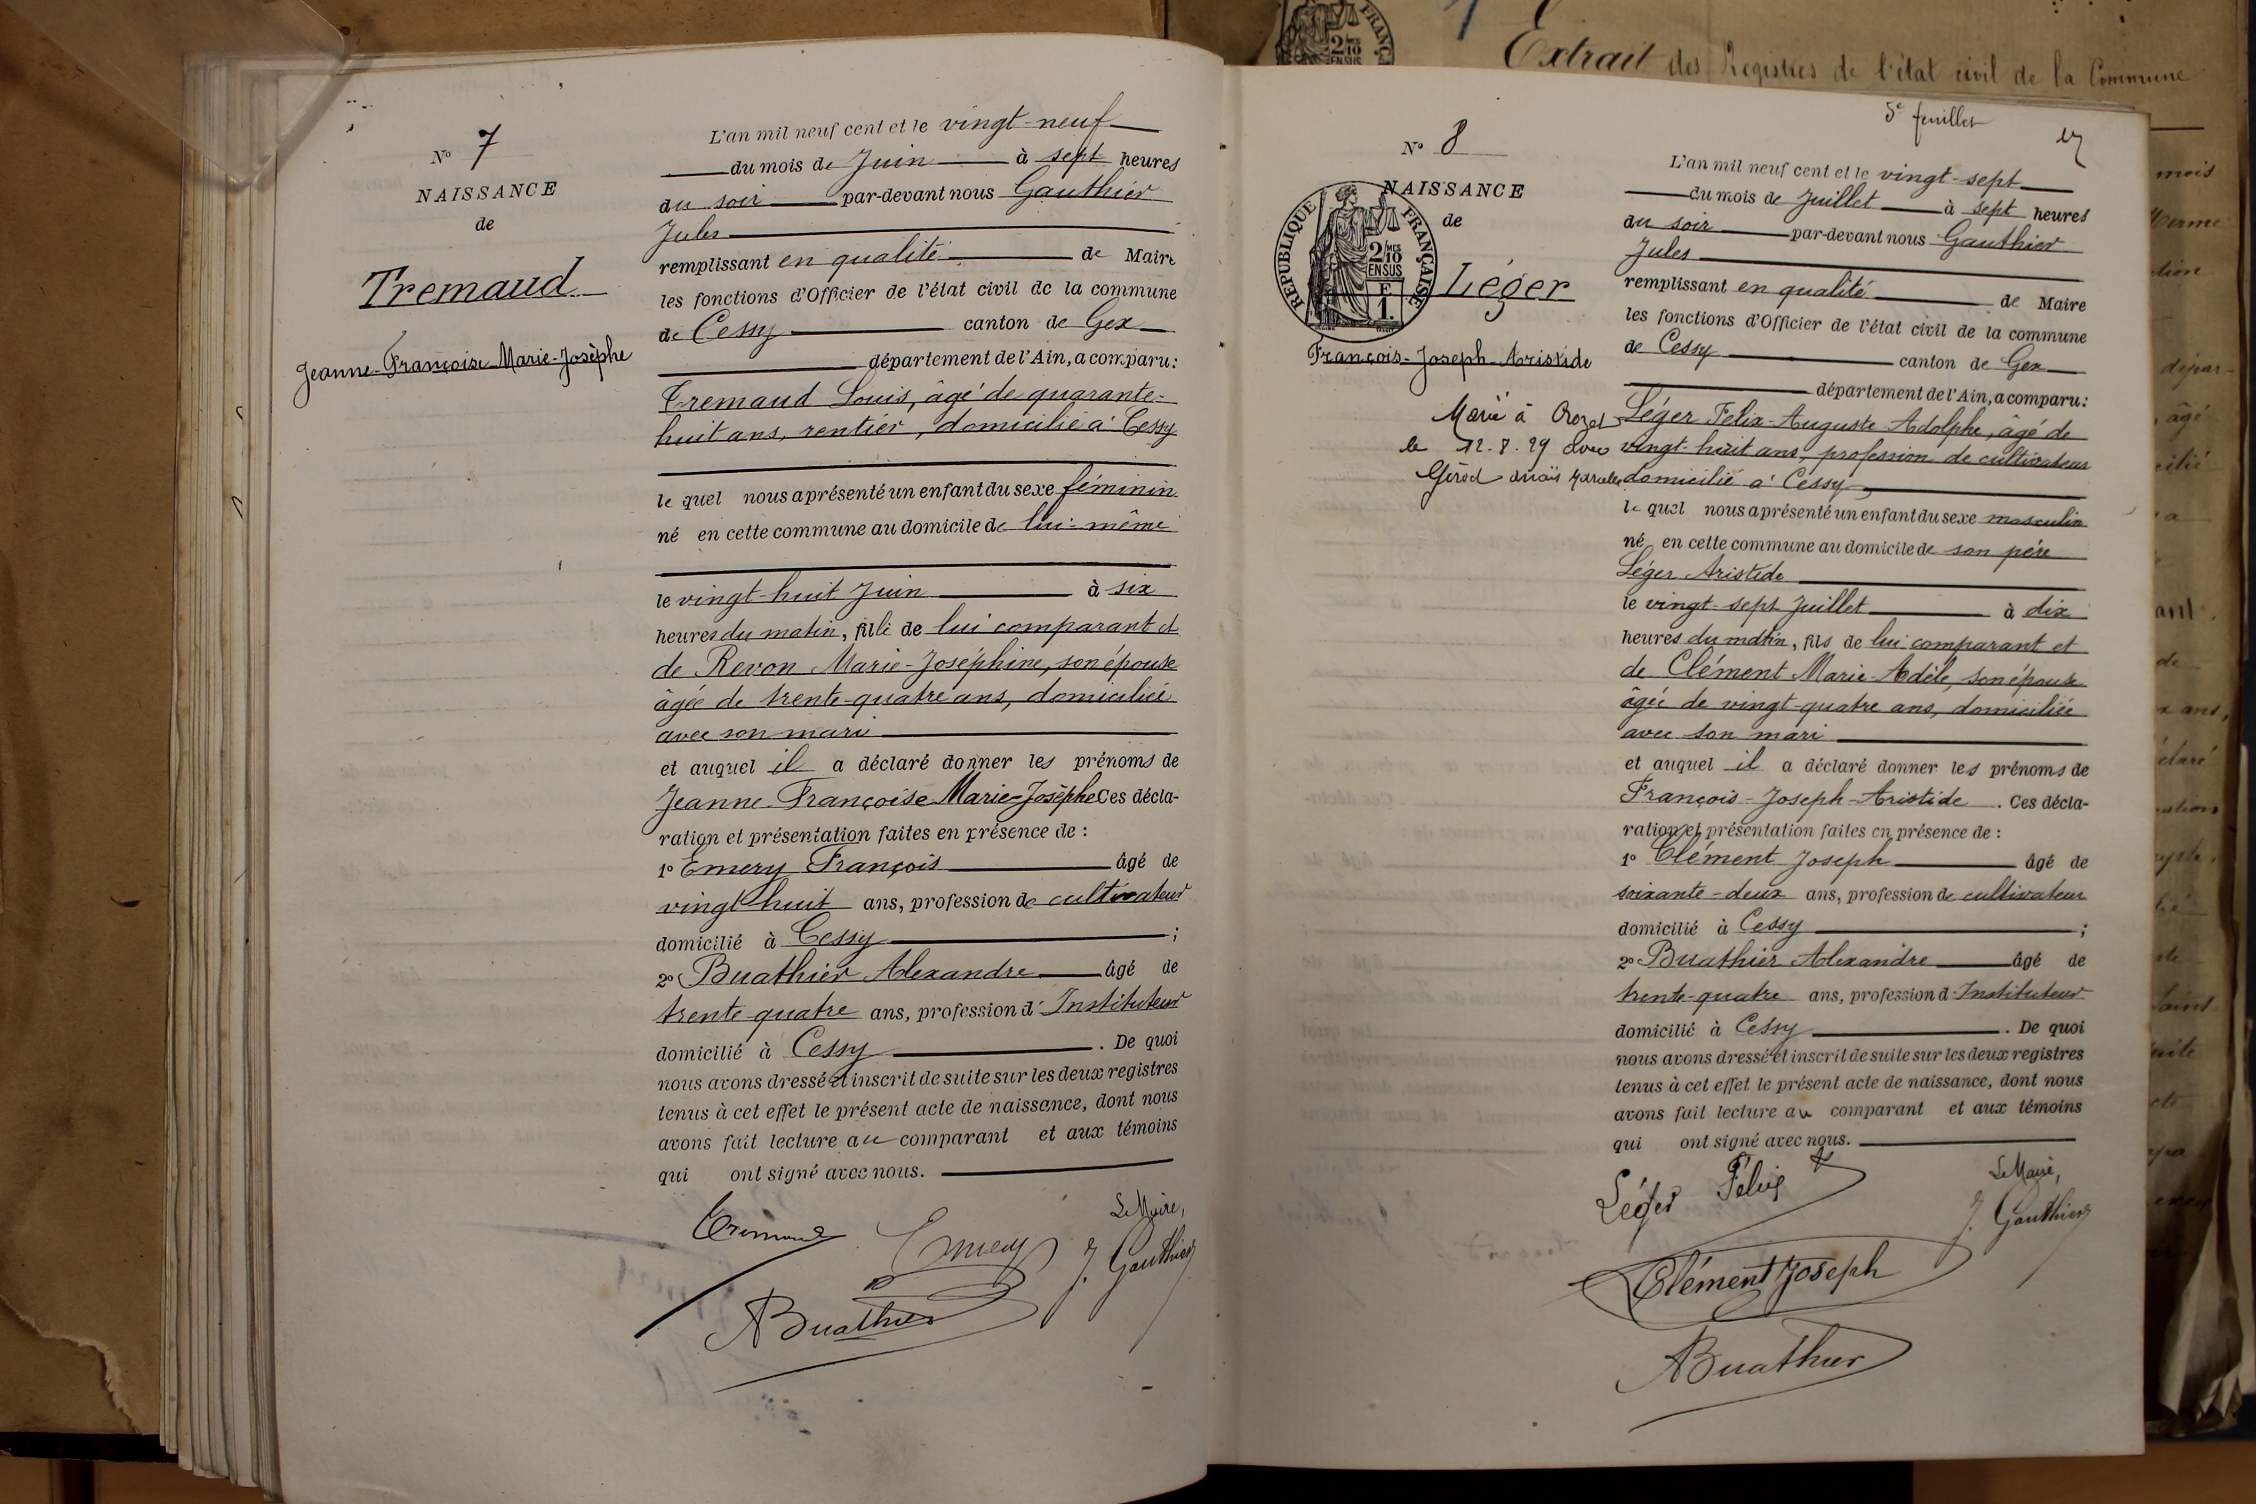 N° 7
NAISSANCE
de
Tremaud
Jeanne-Françoise Marie-Josèphe
L'an mil neuf cent et le vingt-neuf
du mois de Juin à sept heures
du soir par-devant nous Gauthier
Jules
remplissant en qualité de Maire
les fonctions d'Officier de l'état civil de la commune
de Cessy canton de Gex
département de l'Ain, a comparu:
Tremaud Louis, âgé de quarante-
huit ans, rentier, domicilié à Cessy
le quel nous a présenté un enfant du sexe féminin
né en cette commune au domicile de lui-même
le vingt-huit Juin à six
heures du matin, fille de lui comparant et
de Revon Marie-Joséphine, son épouse
âgée de trente-quatre ans, domiciliée
avec son mari
et auquel il a déclaré donner les prénoms de
Jeanne-Françoise Marie-Josèphe Ces décla-
ration et présentation faites en présence de :
1° Emery François âgé de
vingt-huit ans, profession de cultivateur
domicilié à Cessy ;
2° Buathier Alexandre âgé de
trente-quatre ans, profession d'Instituteur
domicilié à Cessy . De quoi
nous avons dressé et inscrit de suite sur les deux registres
tenus à cet effet le présent acte de naissance, dont nous
avons fait lecture au comparant et aux témoins
qui ont signé avec nous.
Le Maire,
Tremaud Emery J. Gauthier
ABuathier
Extrait des Registres de l'état civil de la Commune
5e feuillet
N° 8
NAISSANCE
de
RÉPUBLIQUE FRANÇAISE
2/10 MES
EN SUS
F
1.
Léger
François-Joseph-Aristide
Marié à Crozet
le 12.8.29 avec
Gérod Anaïs Marcelle
L'an mil neuf cent et le vingt-sept
du mois de Juillet à sept heures
du soir par-devant nous Gauthier
Jules
remplissant en qualité de Maire
les fonctions d'Officier de l'état civil de la commune
de Cessy canton de Gex
département de l'Ain, a comparu:
Léger Felix-Auguste-Adolphe, âgé de
vingt-huit ans, profession de cultivateur
domicilié à Cessy,
le quel nous a présenté un enfant du sexe masculin
né en cette commune au domicile de son père
Léger Aristide
le vingt-sept Juillet à dix
heures du matin, fils de lui comparant et
de Clément Marie-Adèle, son épouse
âgée de vingt-quatre ans, domiciliée
avec son mari
et auquel il a déclaré donner les prénoms de
François-Joseph-Aristide . Ces décla-
ration et présentation faites en présence de :
1° Clément Joseph âgé de
soixante-deux ans, profession de cultivateur
domicilié à Cessy ;
2° Buathier Alexandre âgé de
trente-quatre ans, profession d'Instituteur
domicilié à Cessy . De quoi
nous avons dressé et inscrit de suite sur les deux registres
tenus à cet effet le présent acte de naissance, dont nous
avons fait lecture au comparant et aux témoins
qui ont signé avec nous.
Le Maire,
Léger Félix J. Gauthier
Clément Joseph
ABuathier